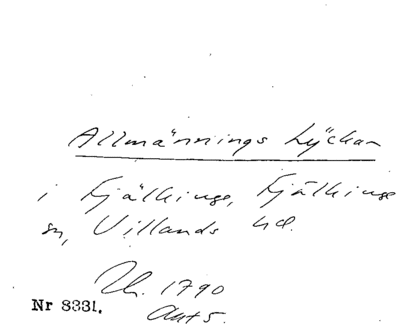 Allmännings Lyckan
i Fjälkinge, Fjälkinge
sn, Villands hd.
Uh. 1790
Akt 5.
Nr 8331.